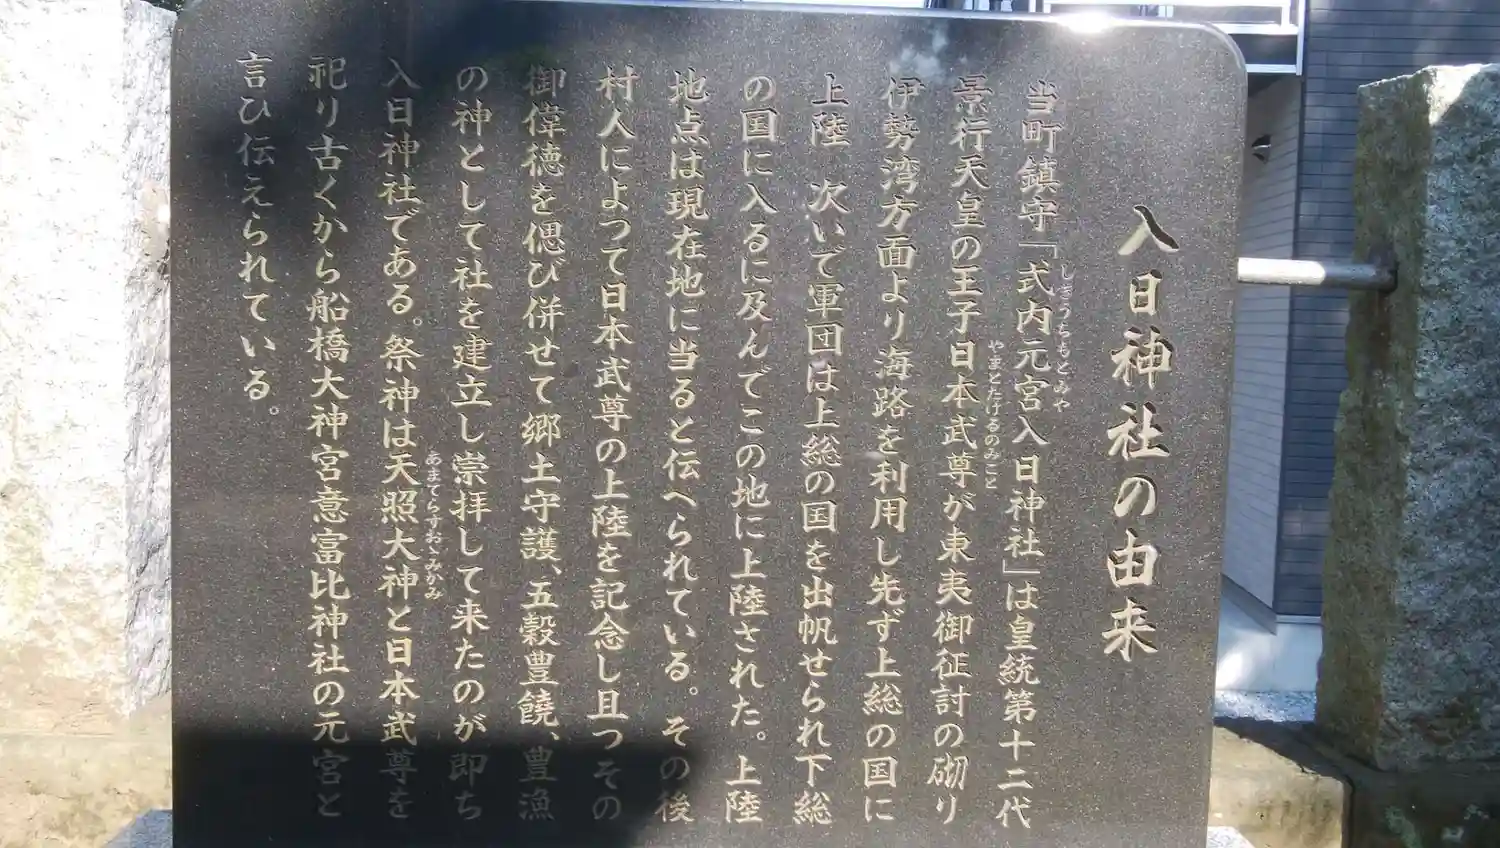 入日神社の由来
当町鎮守「式内元宮入日神社」は皇統第十二代
しきうちもとみや
景行天皇の王子日本武尊が東夷御征討の砌り
やまとたけるのみこと
伊勢湾方面より海路を利用し先ず上総の国に
上陸 次いで軍団は上総の国を出帆せられ下総
の国に入るに及んでこの地に上陸された。上陸
地点は現在地に当ると伝へられている。その後
村人によつて日本武尊の上陸を記念し且つその
御偉徳を偲び併せて郷土守護、五穀豊饒、豊漁
の神として社を建立し崇拝して来たのが即ち
入日神社である。祭神は天照大神と日本武尊を
あまてらすおゝみかみ
祀り古くから船橋大神宮意富比神社の元宮と
言ひ伝えられている。